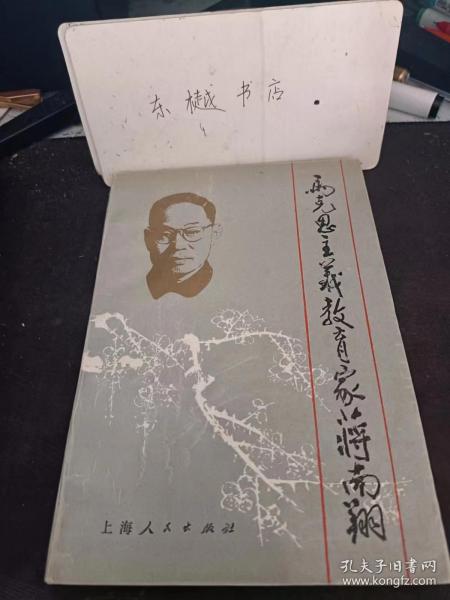 东樾书店
馬克思主義教育家蔣南翔
上海人民出版社
孔夫子旧书网
www.kongfz.com